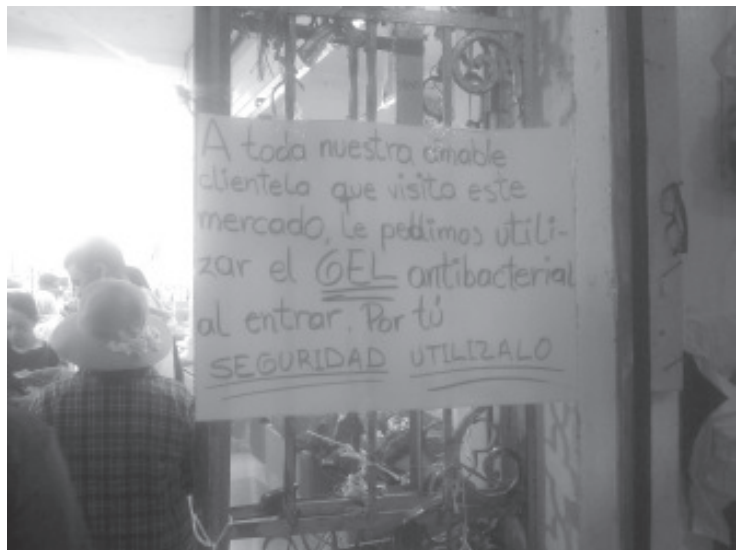 A toda nuestra amable
clientela que visita este
mercado, Le pedimos utili-
zar el GEL antibacterial
al entrar. Por tú
SEGURIDAD UTILIZALO